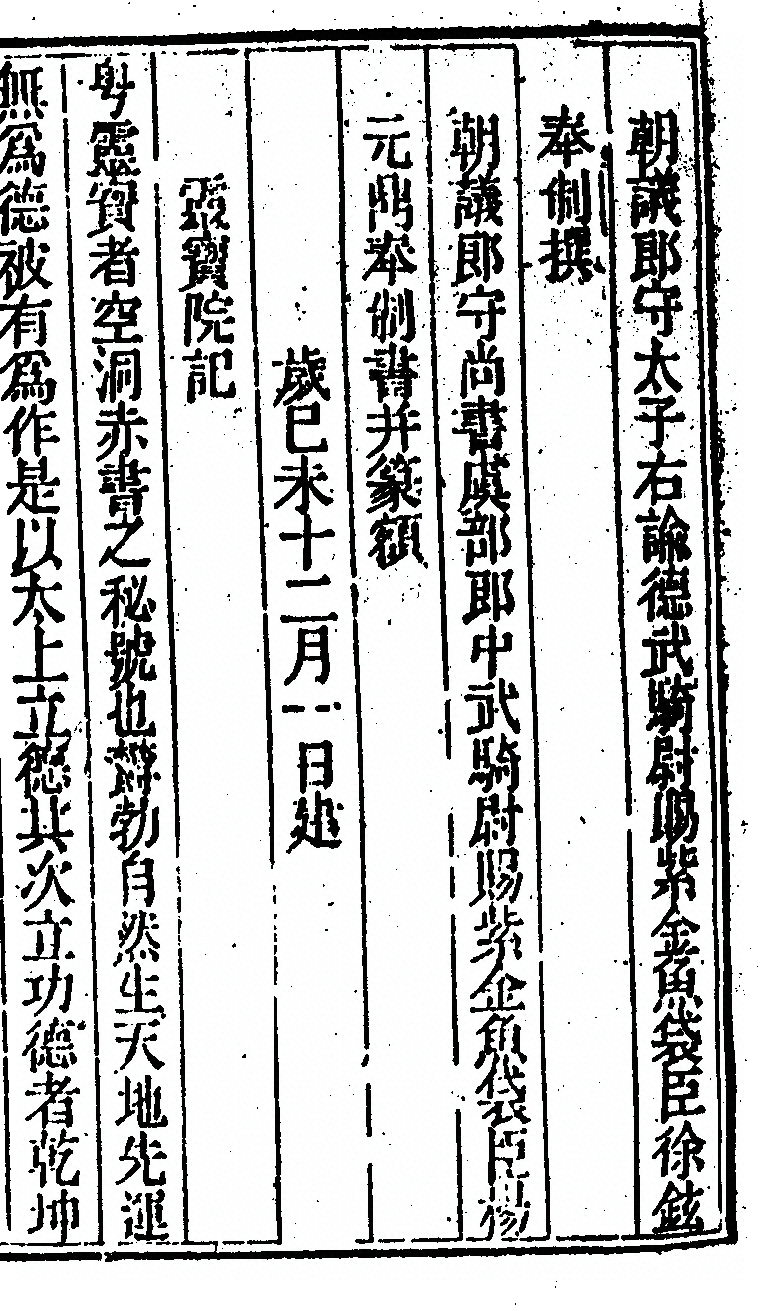 朝議郎守太子右諭德武騎尉賜紫金魚袋臣徐鉉
奉制撰
朝議郎守尚書虞部郎中武騎尉賜紫金魚袋臣楊
元鼎奉制書并篆額
歲己未十二月一日建
靈寶院記
粵靈寶者空洞赤書之秘號也欝勃自然生天地先運
無爲德被有爲作是以太上立德其次立功德者乾坤